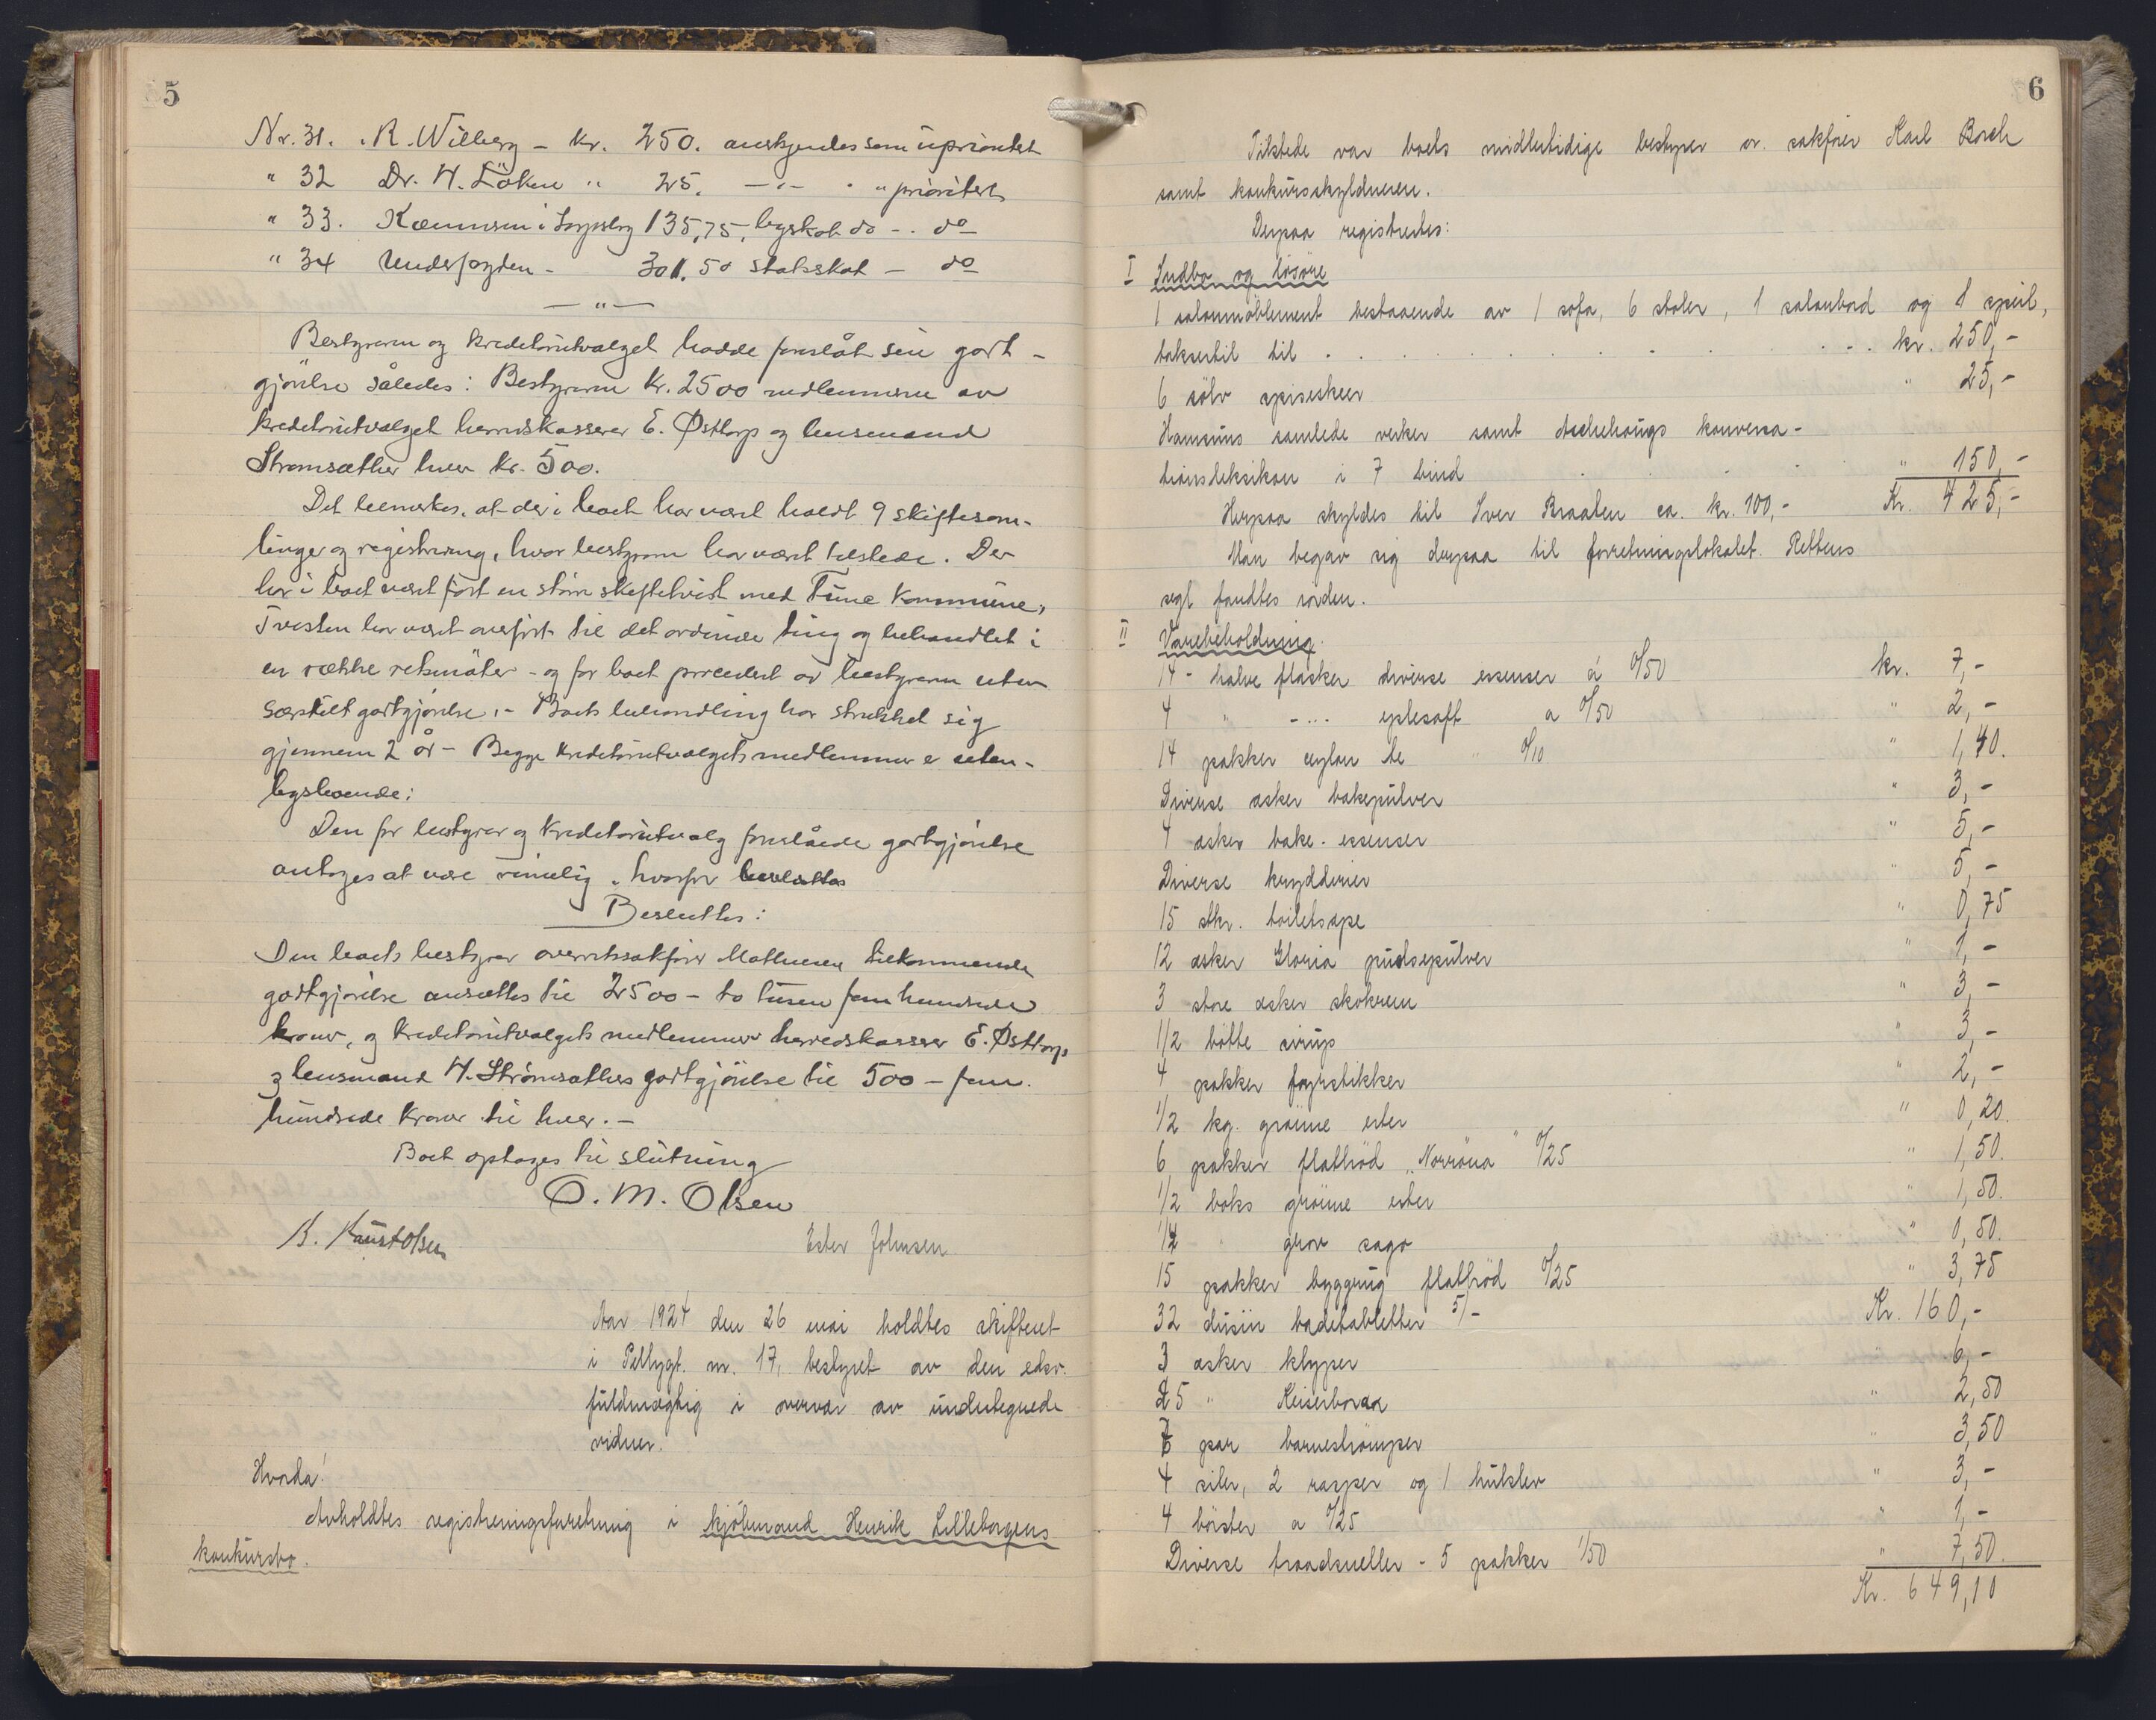 5
Nr. 31. R. Wilberg - kr. 250. anerkjendes som uprioritet
" 32 Dr. H. Löken " 25. -"- " prioritert
" 33. Kæmneren i Sarpsborg 135,75, byskat do -. do
" 34 Underfogden - 301.50 statsskat - do
— " —
Bestyreren og kreditorutvalget hadde foreslåt sin godt-
gjörelse således: Bestyreren kr. 2500 medlemmene av
kreditorutvalget herredskasserer E. Østtorp og lensmand
Strømsæther hver kr. 500.
Det bemerkes, at der i boet har været holdt 9 skiftesam-
linger og registrering, hvor bestyreren har været tilstede. Der
har i boet været fört en större skiftetvist med Tune kommune,
Tvisten har været overfört til det ordinære ting og behandlet i
en række retsmöter - og for boet procedert av bestyreren uten
særskilt godtgjörelse. - Boets behandling har strukket sig
gjennem 2 år - Begge kreditorutvalgets medlemmer er uten-
bysboende:
Den for bestyrer og kreditorutvalg foreslåede godtgjörelse
antages at være rimelig, hvorfor besluttes
Besluttes:
Den boets bestyrer overretssakfører Mathiesen tilkommende
godtgjörelse ansættes til 2500 - to tusen fem hundrede
kroner, og kreditorutvalgets medlemmer herredskasserer E. Østtorps
og lensmand H. Strömsæthers godtgjörelse til 500 - fem
hundrede kroner til hver. -
Boet optages til slutning
O. M. Olsen
B. Knust Olsen Ester Johnsen
Aar 1924 den 26 mai holdtes skifteret
i Pellygt. nr. 17, bestyret av den edsv.
fuldmægtig i overvær av undertegnede
vidner.
Hvorda!
Avholdtes registreringsforretning i kjöbmand Henrik Lilleborgens
konkursbo.
6
Tilstede var boets midlertidige bestyrer or. sakfører Karl Bosch
samt konkursskyldneren.
Derpaa registrertes:
I Indbo og lösöre
1 salonmöblement bestaaende av 1 sofa, 6 stoler, 1 salonbord og 1 speil,
taksertil til . . . kr. 250,-
6 sölv spiseskeer " 25,-
Hamsuns samlede verker samt Aschehougs konversa-
tionsleksikon i 7 bind " 150,-
Herpaa skyldes til Iver Braaten ca. kr. 100,- Kr. 425,-
Man begav sig derpaa til forretningslokalet. Rettens
segl fandtes iorden.
II Varebeholdning.
14 - halve flasker diverse essenser á 0/50 kr. 7,-
4 " -"- eplesaft a 0/50 " 2,-
14 pakker ceylon te " 0/10 " 1,40.
Diverse æsker bakepulver " 3,-
4 æsker bake-essenser " 5,-
Diverse krydderier " 5,-
15 stkr. toiletsæpe " 0,75
12 æsker Gloria pudsepulver " 1,-
3 store æsker skokrem " 3,-
1/2 bötte sirup " 3,-
4 pakker fyrstikker " 2,-
1/2 kg. gröine erter " 0,20.
6 pakker flatbröd "Norröna" 0/25 " 1,50.
1/2 boks gröine erter " 1,50.
1/2 " grov sago " 0,50.
15 pakker byggryn flatbröd 0/25 " 3,75
32 dusin badetabletter 5/- Kr. 160,-
3 æsker klyper " 6,-
25 " Keiserborax " 2,50
7 par barneströmper " 3,50
4 siler, 2 rasper og 1 hulslev " 3,-
4 börster a 0/25 " 1,-
Diverse traadsneller - 5 pakker 1/50 " 7,50.
Kr. 649,10